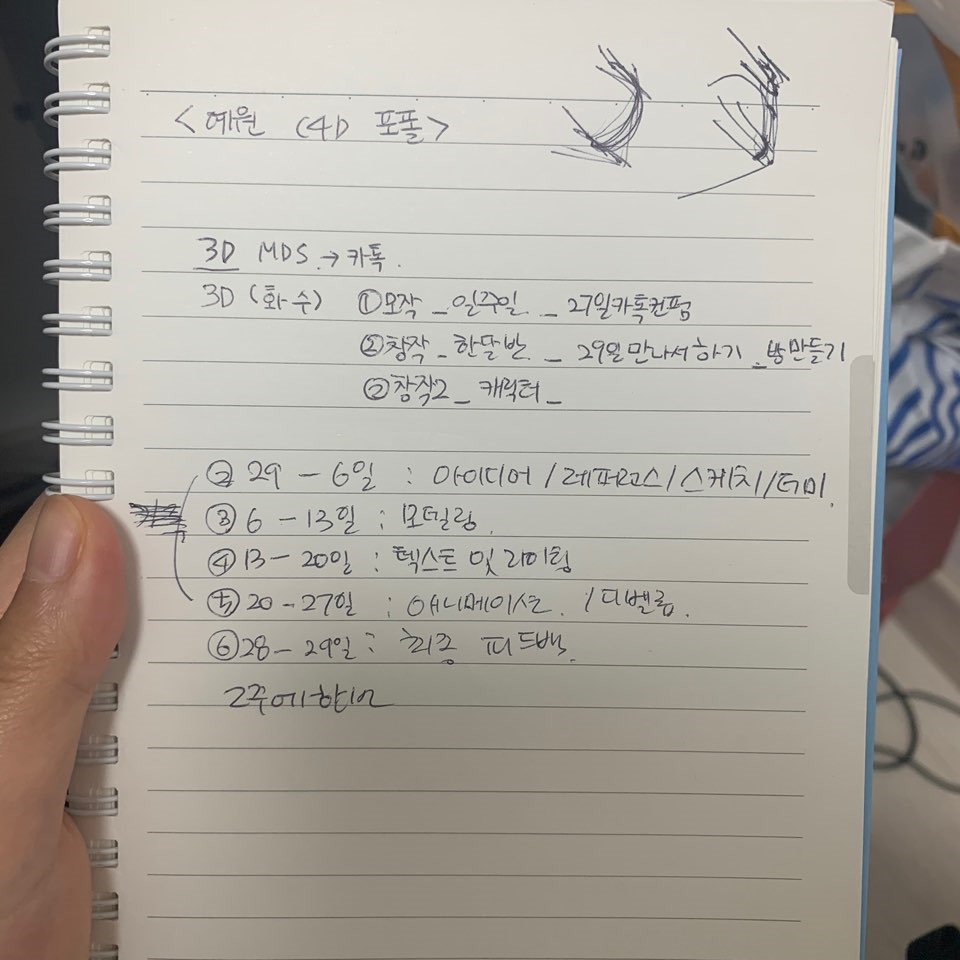 <예원 C4D 포폴>
3D MDS → 카톡.
3D (화수) ①모작 _ 일주일. _ 27일카톡컨펌
②창작 _ 한달반. _ 29일만나서하기 _방만들기
②창작2 _ 캐릭터 _
② 29 - 6일 : 아이디어 / 레퍼런스 / 스케치 / 더미.
③ 6 - 13일 : 모델링.
④ 13 - 20일 : 텍스트 및 라이팅
⑤ 20 - 27일 : 애니메이션. / 디벨롭.
⑥ 28 - 29일 : 최종 피드백.
2주에한번